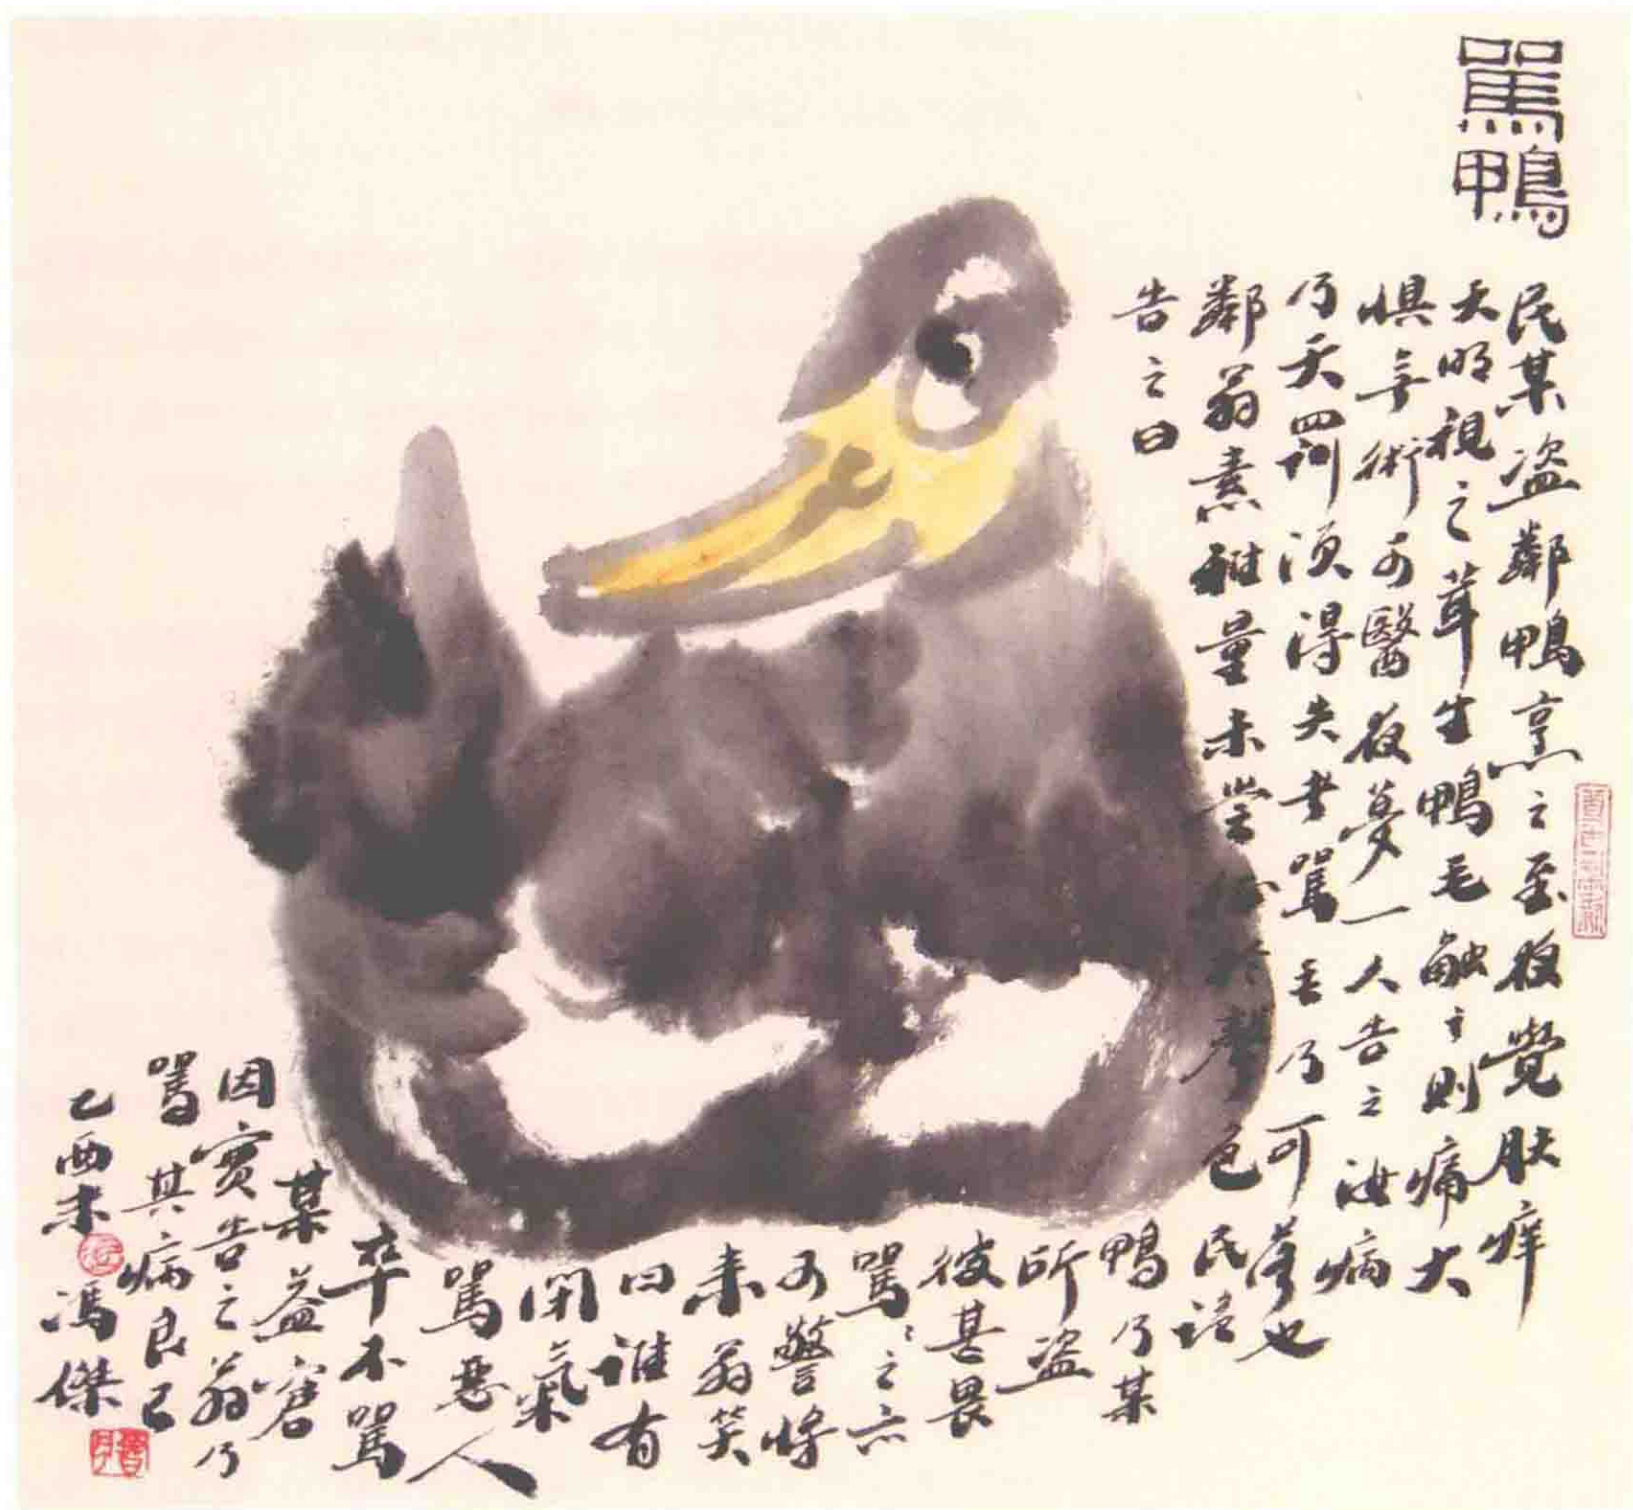 罵鴨
民某盗鄰鴨烹之至夜覺肤痒
天明視之茸生鴨毛觸之則痛大
惧无術可醫夜夢一人告之汝病
乃天罰須得失者罵毛乃可落也
鄰翁素雅量未嘗徵於聲色民詭
告之曰
鴨乃某
所盗
彼甚畏
罵罵之亦
可警将
来翁笑
曰谁有
閑氣
罵惡人
卒不罵
某益窘
因實告之翁乃
罵其病良已
乙酉末馮傑